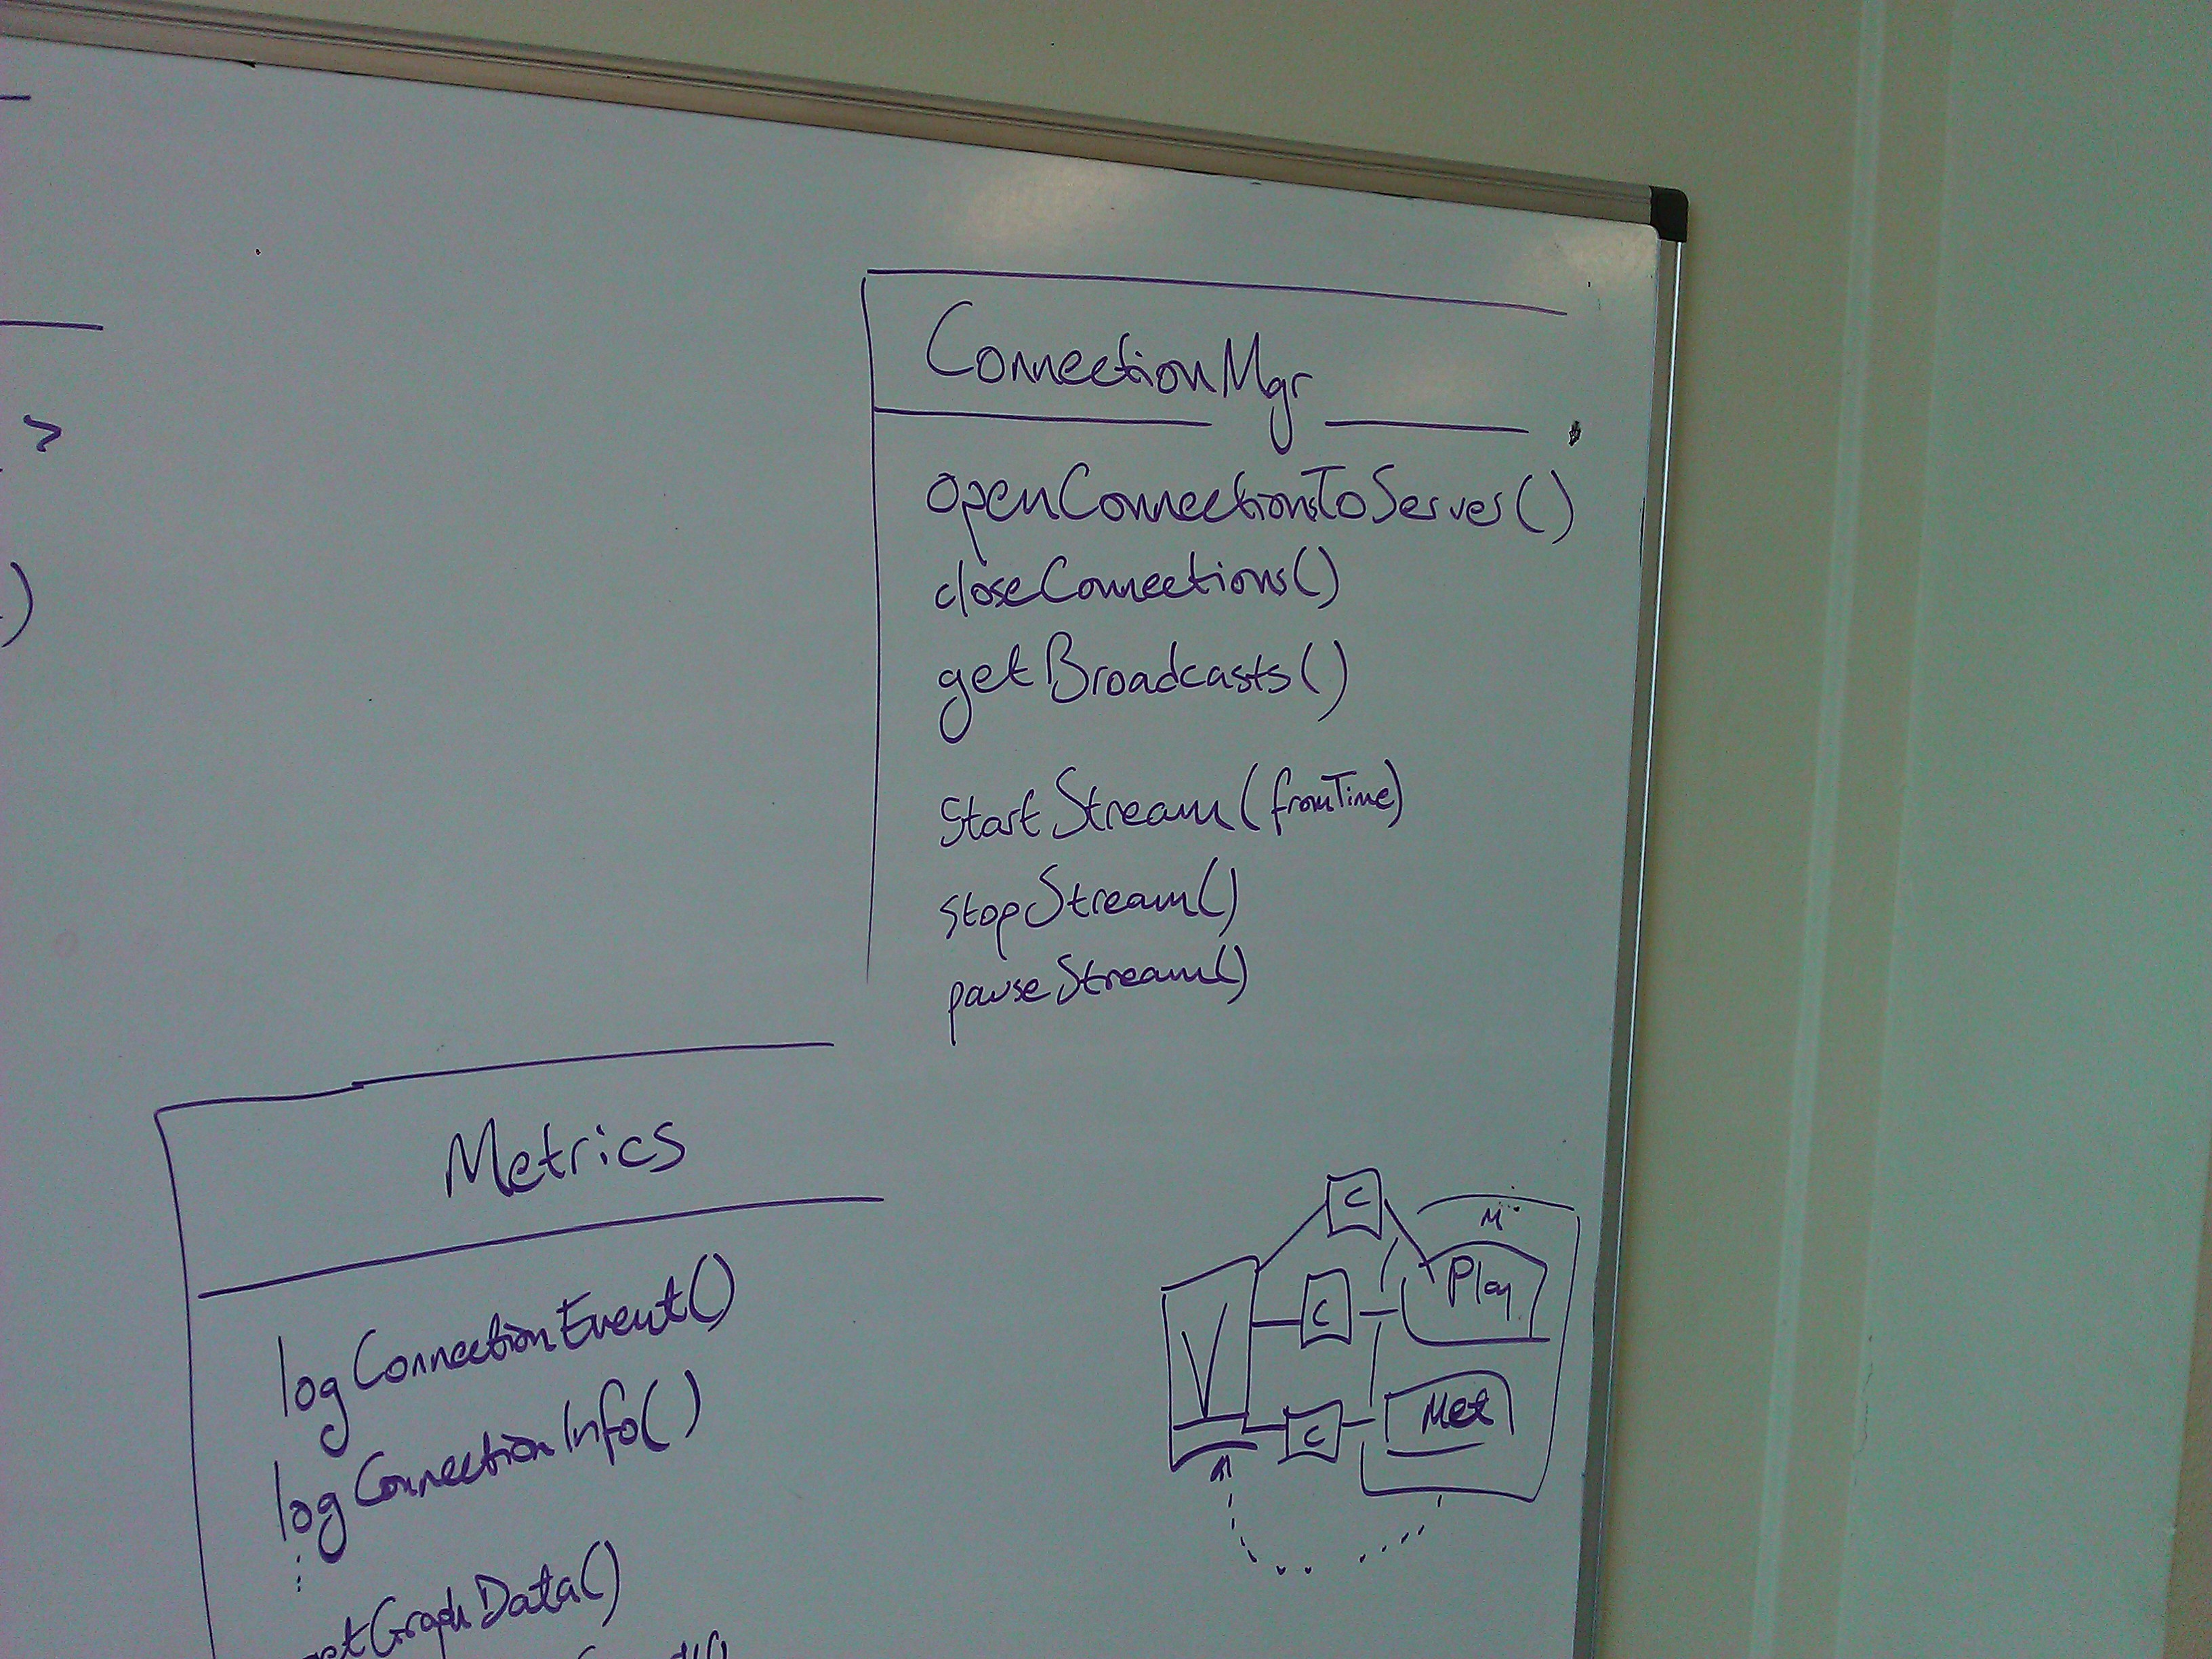 >
)
ConnectionMgr
openConnectionToServer()
closeConnections()
getBroadcasts()
startStream(fromTime)
stopStream()
pauseStream()
Metrics
logConnectionEvent()
logConnectionInfo()
⋮
getGraphData()
C
M
V
C
Play
C
Met